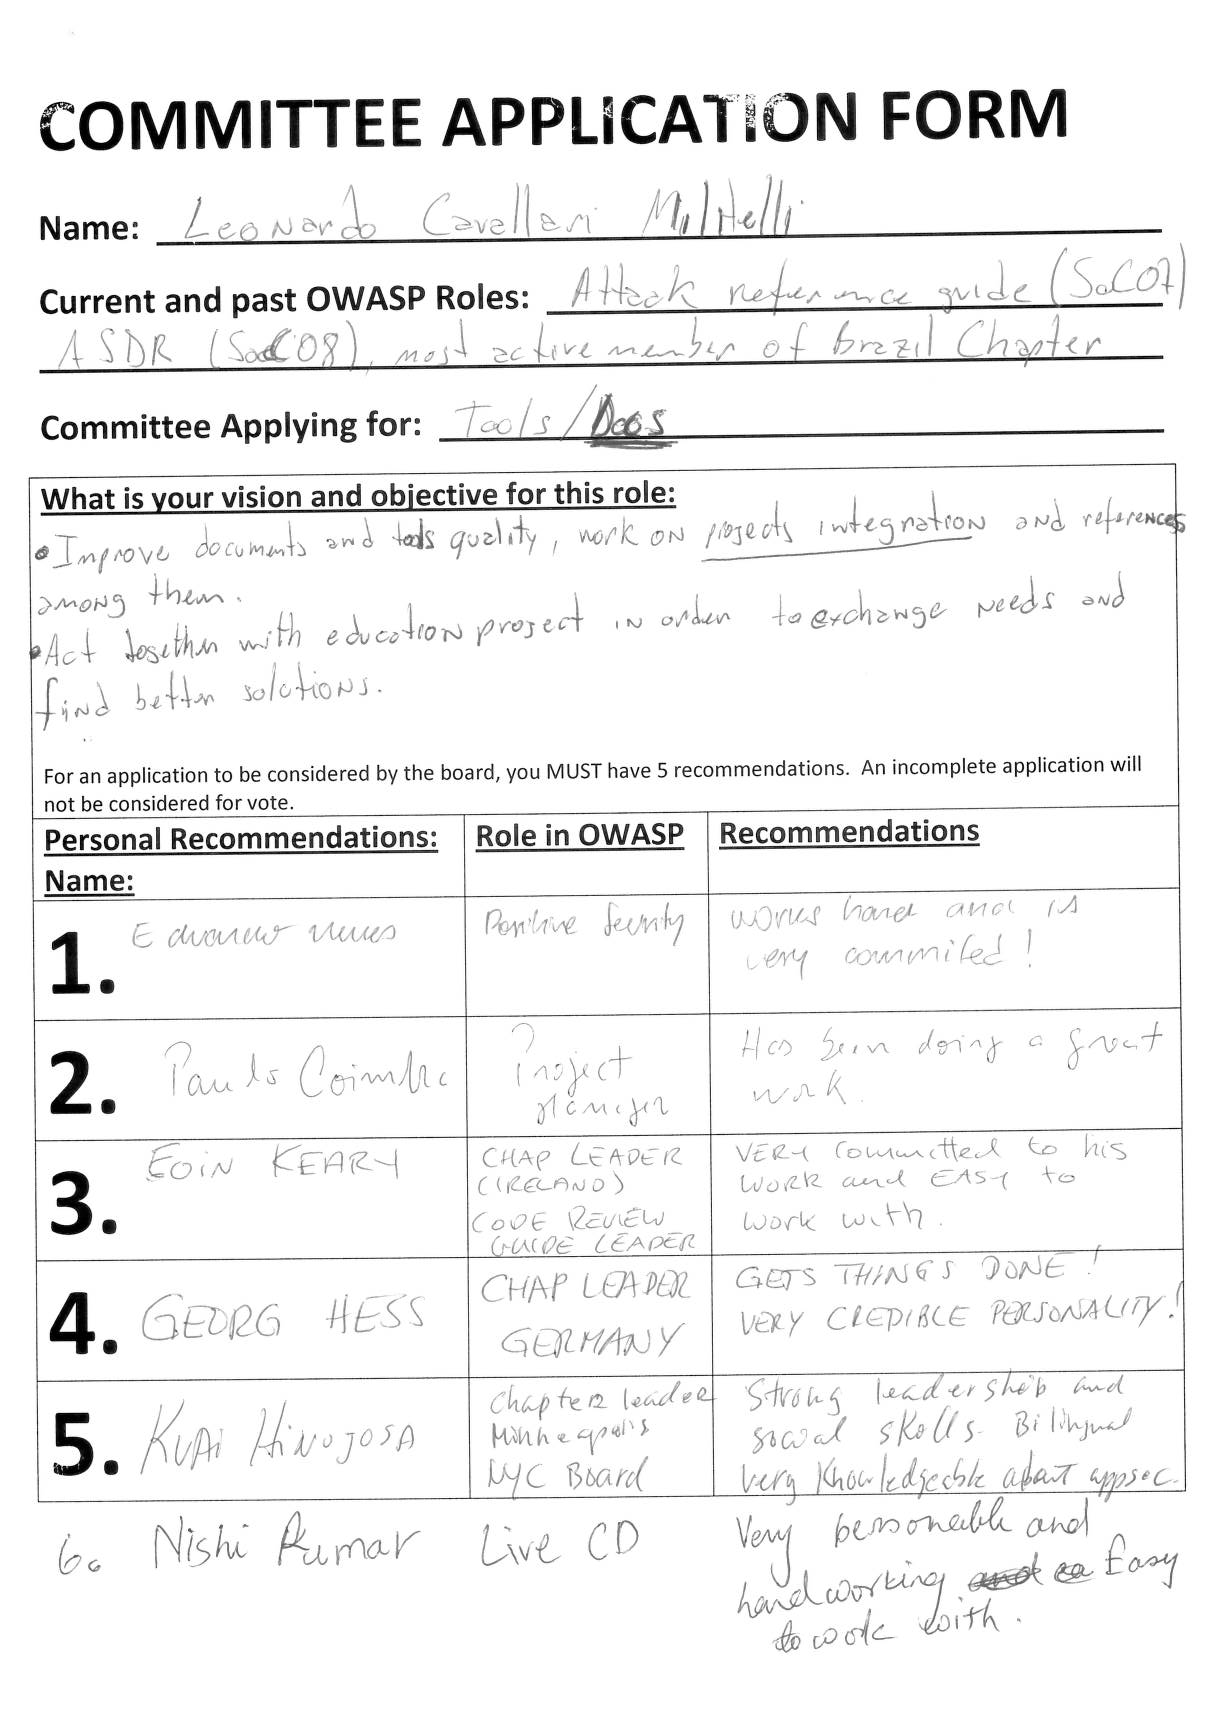 COMMITTEE APPLICATION FORM
Name: Leonardo Cavallari Militelli
Current and past OWASP Roles: Attack reference guide (SoC07)
ASDR (SoC08), most active member of Brazil Chapter
Committee Applying for: Tools/Docs
What is your vision and objective for this role:
• Improve documents and tools quality, work on projects integration and references
among them.
• Act together with education project in order to exchange needs and
find better solutions.
For an application to be considered by the board, you MUST have 5 recommendations. An incomplete application will
not be considered for vote.
Personal Recommendations: Role in OWASP Recommendations
Name:
1. Eduardo Neves Positive Security works hard and is
very commited!
2. Paulo Coimbra Project Manager Has been doing a great
work.
3. EOIN KEARY CHAP LEADER VERY committed to his
(IRELAND) WORK and EASY to
CODE REVIEW work with.
GUIDE LEADER
4. GEORG HESS CHAP LEADER GETS THINGS DONE!
GERMANY VERY CREDIBLE PERSONALITY!
5. KUAI HINOJOSA Chapter leader Strong leadership and
Minneapolis social skills. Bilingual
NYC Board very knowledgeable about appsec.
6. Nishi Kumar Live CD Very personable and
hard working Easy
to work with.